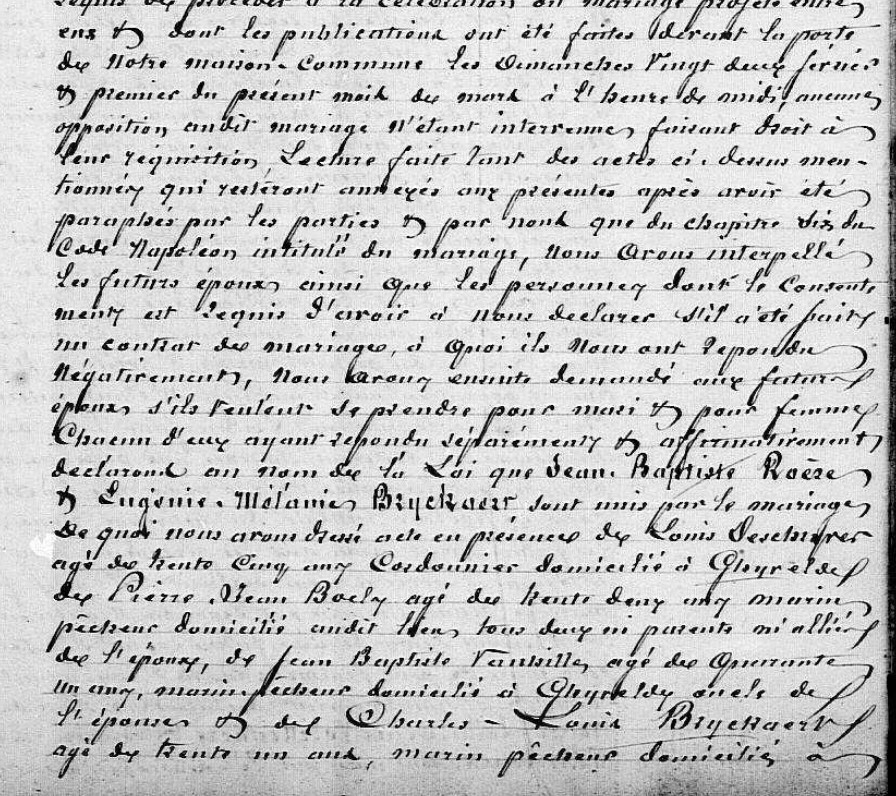 requis de procéder à la célébration du mariage projeté entre
eux & dont les publications ont été faites devant la porte
de notre maison-commune les Dimanches Vingt deux février
& premier du présent mois de mars à l'heure de midi, aucune
opposition audit mariage n'étant intervenue, faisant droit à
leur réquisition Lecture faite tant des actes ci-dessus men-
tionnés qui resteront annexés aux présentes après avoir été
paraphés par les parties & par nous que du chapitre six du
Code Napoléon intitulé du mariage, nous avons interpellé
les futurs époux ainsi que les personnes dont le consente
ment est requis d'avoir à nous déclarer s'il a été fait
un contrat de mariage, à quoi ils nous ont répondu
négativement, nous avons ensuite demandé aux futurs
époux s'ils veulent se prendre pour mari & pour femme
Chacun d'eux ayant répondu séparément & affirmativement
déclarons au nom de la Loi que Jean-Baptiste Roëze
& Eugénie-Mélanie Bryckaert sont unis par le mariage
De quoi nous avons dressé acte en présence de Louis
agé de trente Cinq ans Cordonnier domicilié à Ghyvelde
de Pierre Jean Boely agé de trente deux ans marin
pêcheur domicilié audit lieu, tous deux ni parents ni alliés
de l'époux, de Jean Baptiste Vanhille, agé de Quarante
un ans, marin pêcheur domicilié à Ghyvelde oncle de
l'épouse & de Charles-Louis Bryckaert
agé de trente un ans, marin pêcheur domicilié à